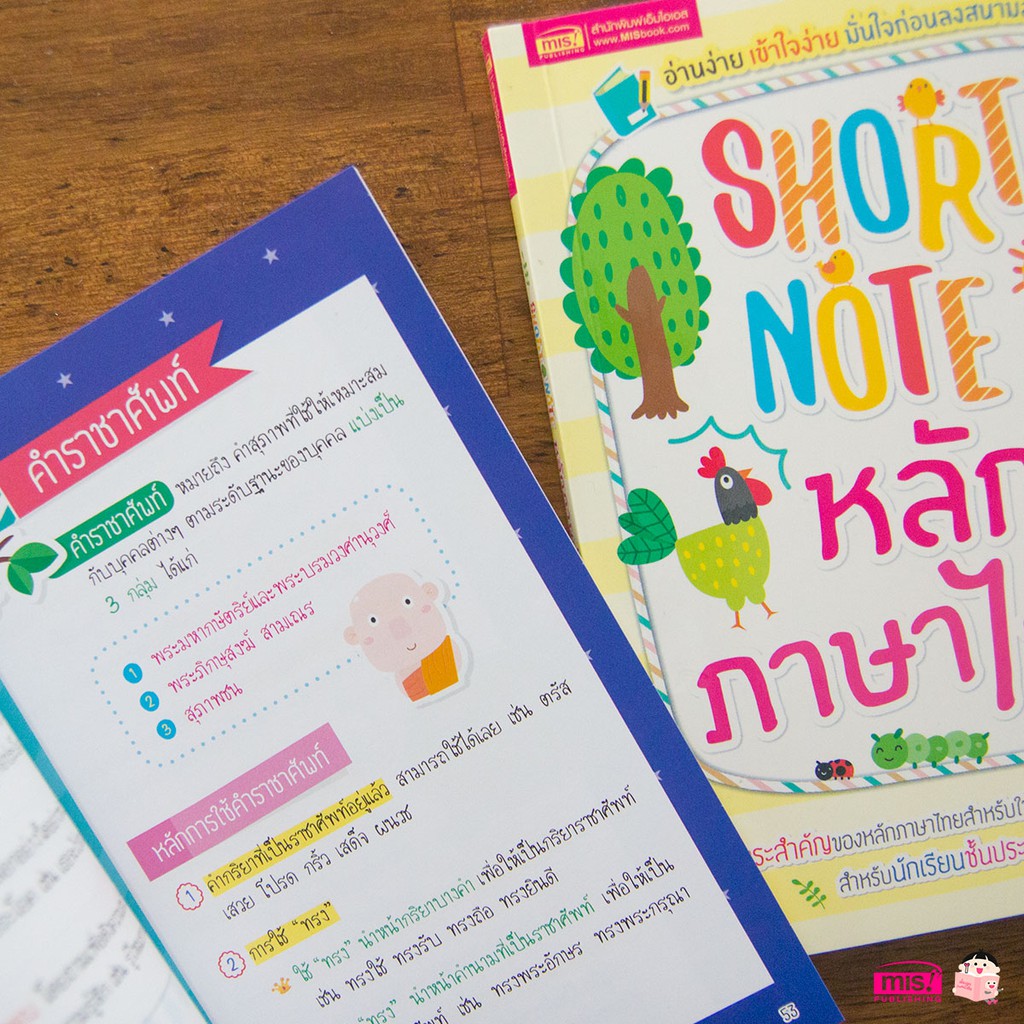 คำราชาศัพท์
คำราชาศัพท์ หมายถึง คำสุภาพที่ใช้ให้เหมาะสม
กับบุคคลต่างๆ ตามระดับฐานะของบุคคล แบ่งเป็น
3 กลุ่ม ได้แก่
1 พระมหากษัตริย์และพระบรมวงศานุวงศ์
2 พระภิกษุสงฆ์ สามเณร
3 สุภาพชน
หลักการใช้คำราชาศัพท์
1 คำกริยาที่เป็นราชาศัพท์อยู่แล้ว สามารถใช้ได้เลย เช่น ตรัส
เสวย โปรด กริ้ว เสด็จ ผนวช
2 การใช้ "ทรง"
ใช้ "ทรง" นำหน้ากริยาบางคำ เพื่อให้เป็นกริยาราชาศัพท์
เช่น ทรงใช้ ทรงรับ ทรงถือ ทรงยินดี
"ทรง" นำหน้าคำนามที่เป็นราชาศัพท์ เพื่อให้เป็น
เช่น ทรงพระอักษร ทรงพระกรุณา
53
mis!
PUBLISHING
สำนักพิมพ์เอ็มไอเอส
www.MISbook.com
อ่านง่าย เข้าใจง่าย มั่นใจก่อนลงสนาม
SHORT
NOTE
หลัก
ภาษาไ
ระสำคัญของหลักภาษาไทยสำหรับใ
สำหรับนักเรียนชั้นประ
mis!
PUBLISHING